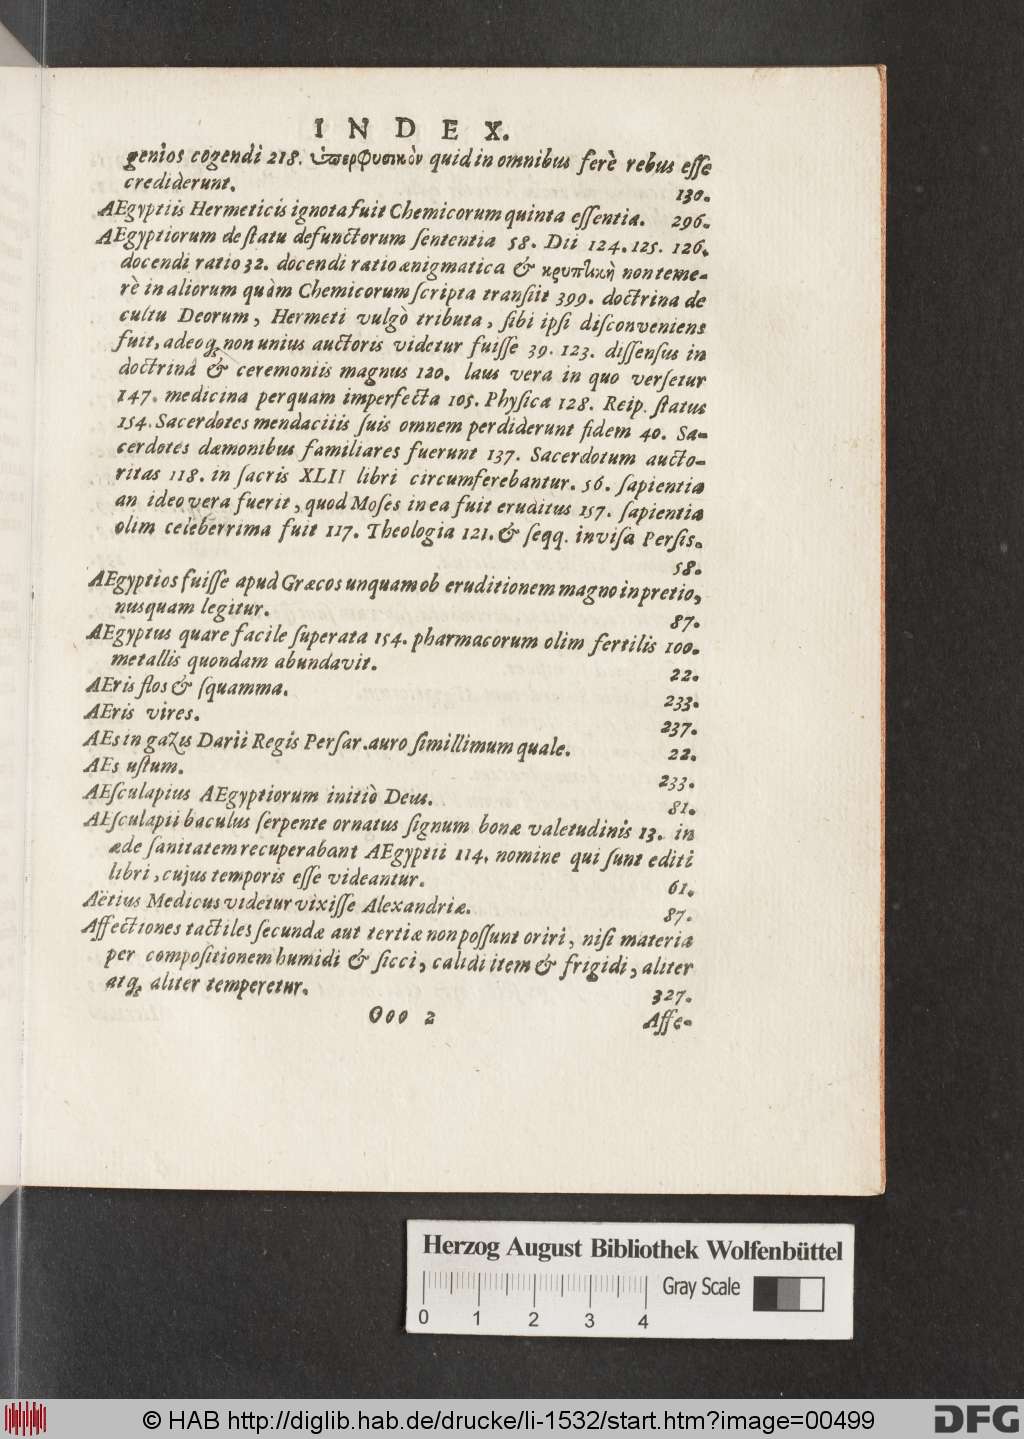 INDEX.
genios cogendi 218. ὑπερφυσικὸν quid in omnibus ferè rebus esse
crediderunt. 130.
AEgyptiis Hermeticis ignota fuit Chemicorum quinta essentia. 296.
AEgyptiorum de statu defunctorum sententia 58. Dii 124. 125. 126.
docendi ratio 32. docendi ratio ænigmatica & κρυπτικὴ non teme-
rè in aliorum quàm Chemicorum scripta transiit 399. doctrina de
cultu Deorum, Hermeti vulgò tributa, sibi ipsi disconveniens
fuit, adeoq; non unius auctoris videtur fuisse 39. 123. dissensus in
doctrinâ & ceremoniis magnus 120. laus vera in quo versetur
147. medicina perquam imperfecta 105. Physica 128. Reip. status
154. Sacerdotes mendaciiis suis omnem perdiderunt fidem 40. Sa-
cerdotes dæmonibus familiares fuerunt 137. Sacerdotum aucto-
ritas 118. in sacris XLII libri circumferebantur. 56. sapientia
an ideo vera fuerit, quod Moses in ea fuit eruditus 157. sapientia
olim celeberrima fuit 117. Theologia 121. & seqq. invisa Persis.
58.
AEgyptios fuisse apud Græcos unquam ob eruditionem magno in pretio,
nusquam legitur. 87.
AEgyptus quare facile superata 154. pharmacorum olim fertilis 100.
metallis quondam abundavit. 22.
AEris flos & squamma. 233.
AEris vires. 237.
AEs in gazis Darii Regis Persar. auro simillimum quale. 22.
AEs ustum. 233.
AEsculapius AEgyptiorum initiò Deus. 81.
AEsculapii baculus serpente ornatus signum bonæ valetudinis 13. in
æde sanitatem recuperabant AEgyptii 114. nomine qui sunt editi
libri, cujus temporis esse videantur. 61.
Aëtius Medicus videtur vixisse Alexandriæ. 87.
Affectiones tactiles secundæ aut tertiæ non possunt oriri, nisi materia
per compositionem humidi & sicci, calidi item & frigidi, aliter
atq; aliter temperetur. 327.
Ooo 2 Affe-
Herzog August Bibliothek Wolfenbüttel
Gray Scale
0 1 2 3 4
© HAB http://diglib.hab.de/drucke/li-1532/start.htm?image=00499
DFG